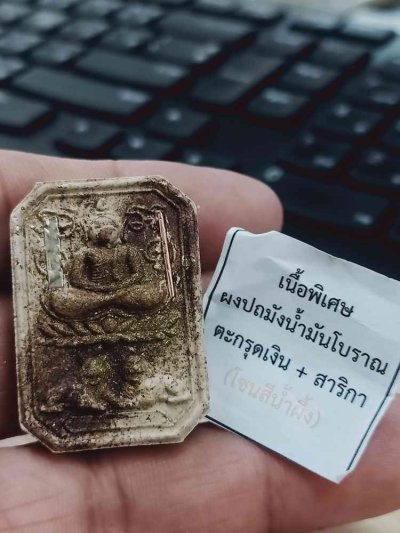 เนื้อพิเศษ
ผงปถมังน้ำมันโบราณ
ตะกรุดเงิน + สาริกา
(โซนสีน้ำผึ้ง)